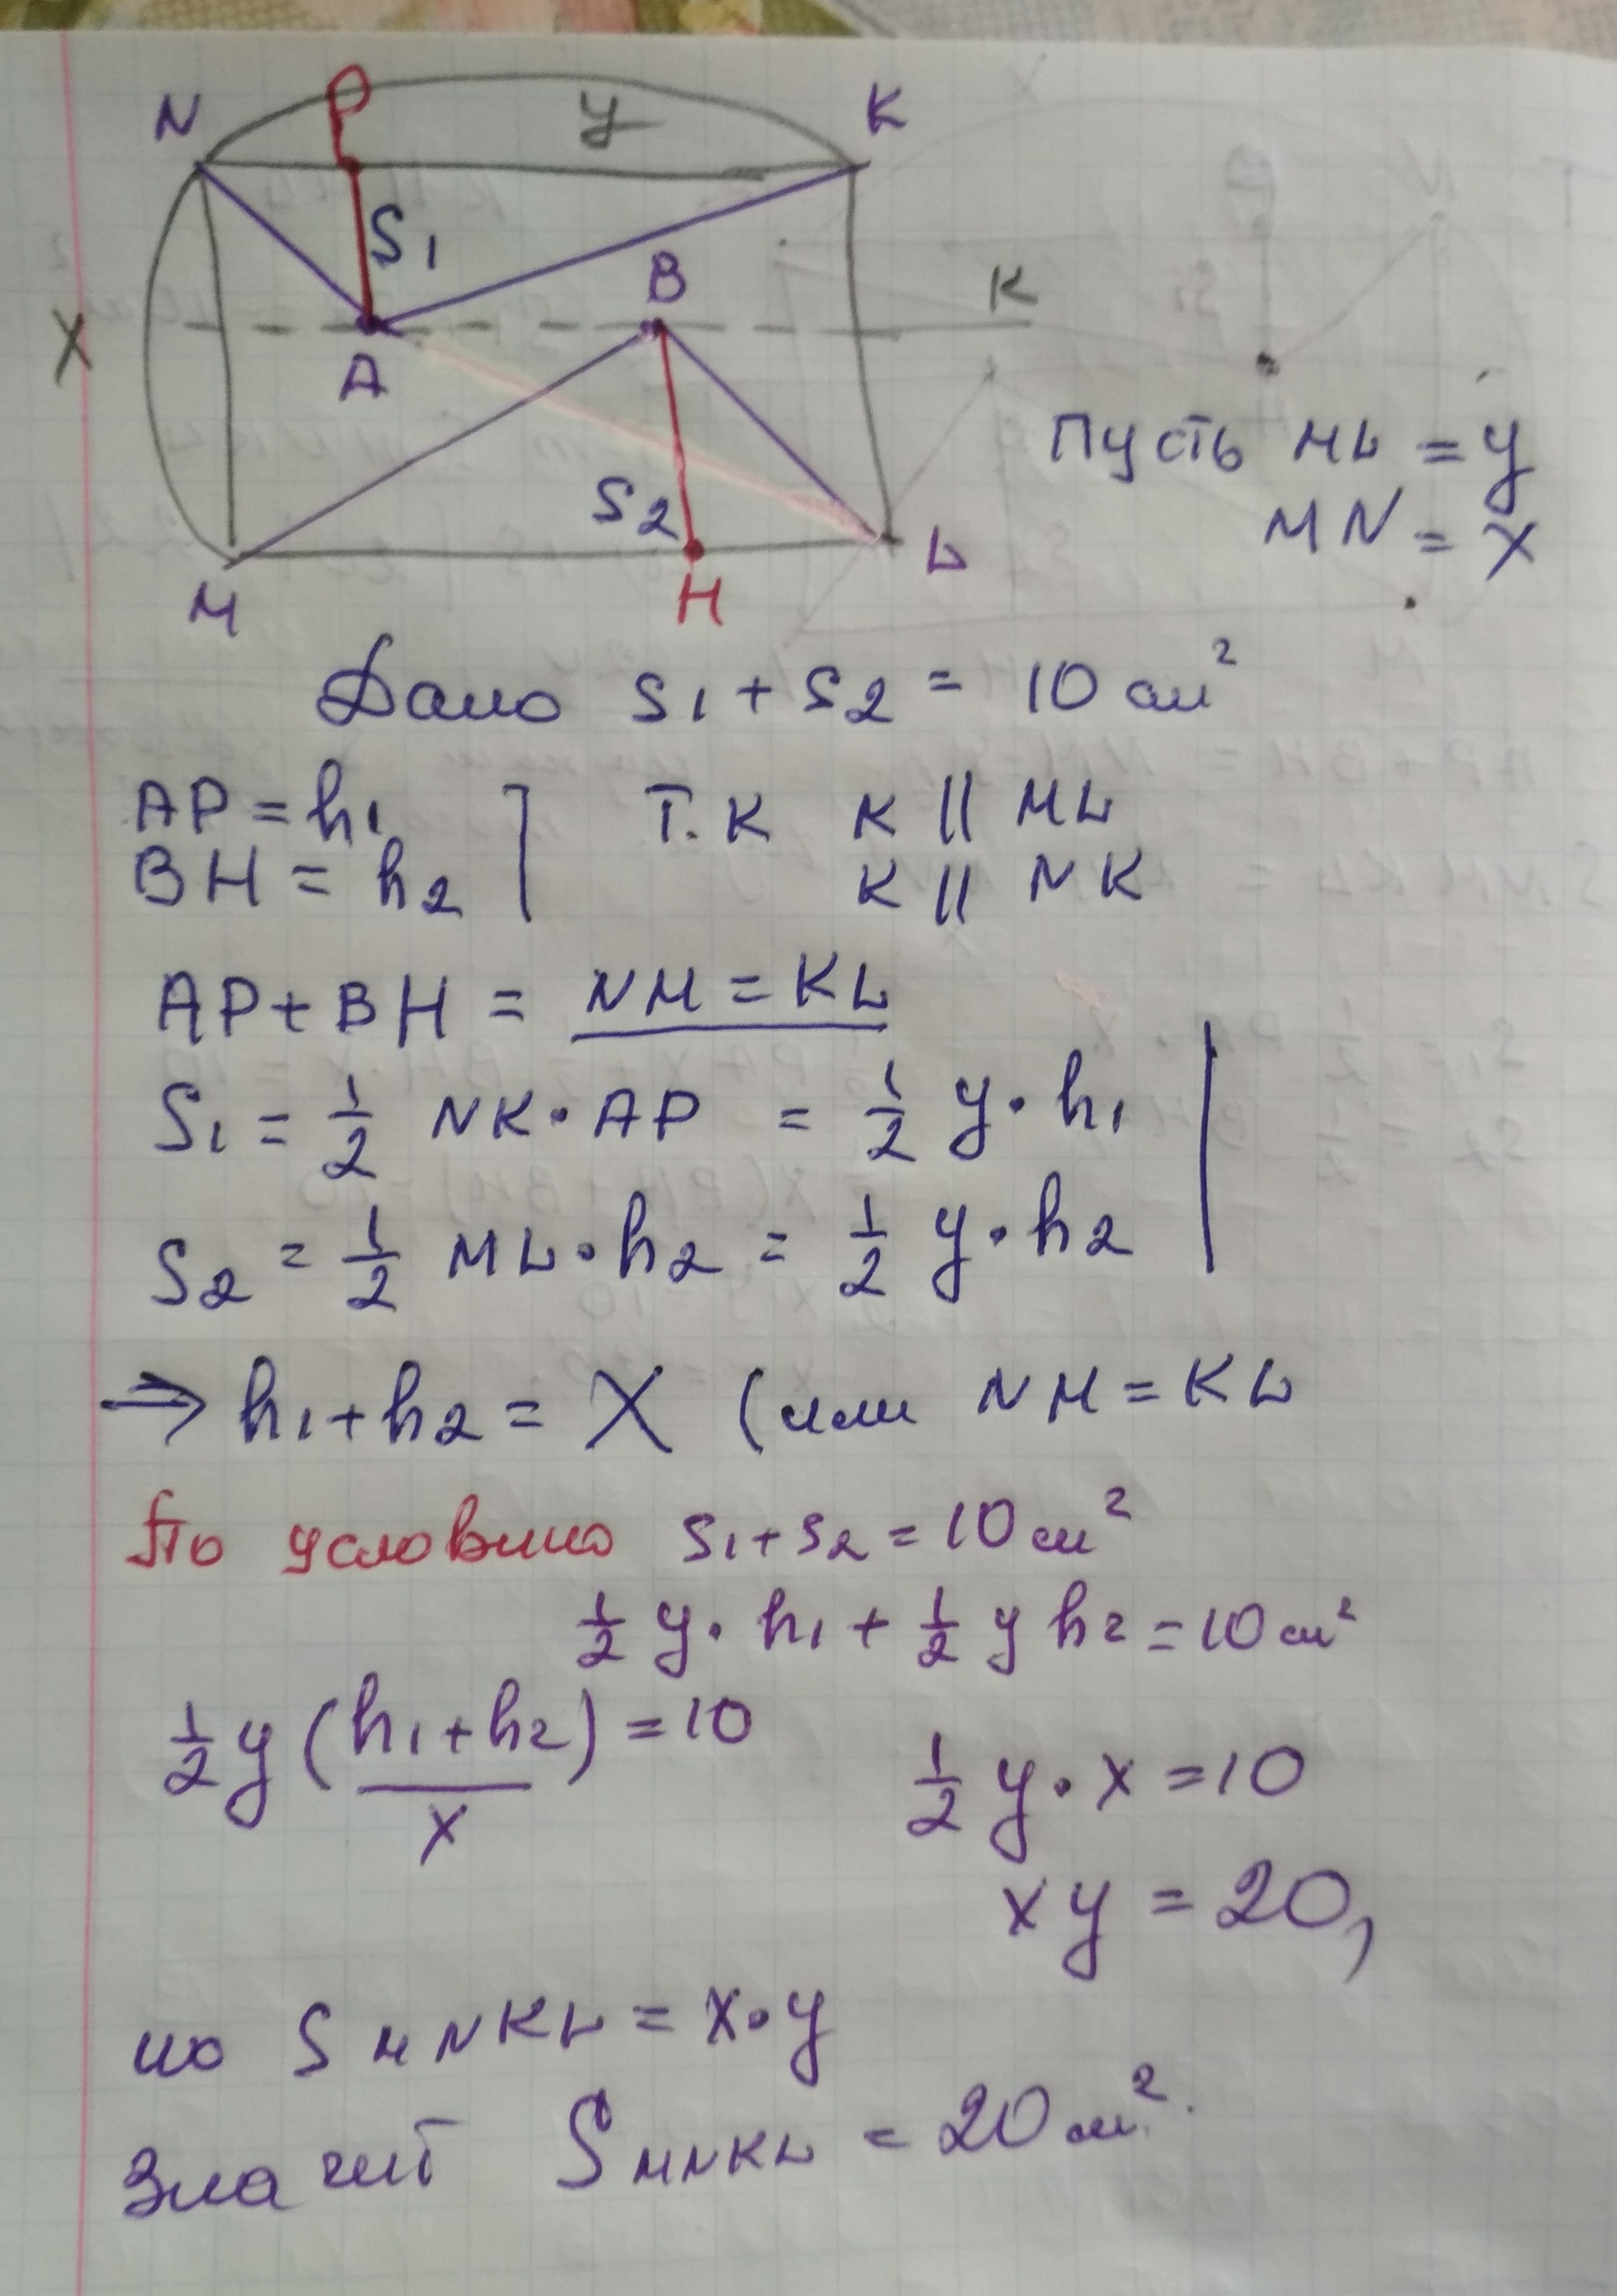 N P y K
S1
B K
X
A
Пусть ML = y
S2 MN = X
M H L
Дано S1 + S2 = 10 см²
AP = h1 ] Т.К K || ML
BH = h2 K || NK
AP + BH = NM = KL
S1 = 1/2 NK · AP = 1/2 y · h1
S2 = 1/2 ML · h2 = 1/2 y · h2
⇒ h1 + h2 = X (или NM = KL
По условию S1 + S2 = 10 см²
1/2 y · h1 + 1/2 y h2 = 10 см²
1/2 y (h1 + h2) = 10
x
1/2 y · x = 10
xy = 20,
но S MNKL = x · y
Значит S MNKL = 20 см².